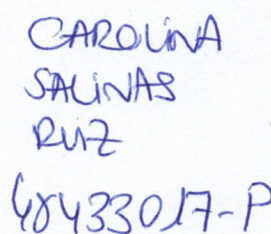 CAROLINA
SALINAS
RUIZ
48433017-P